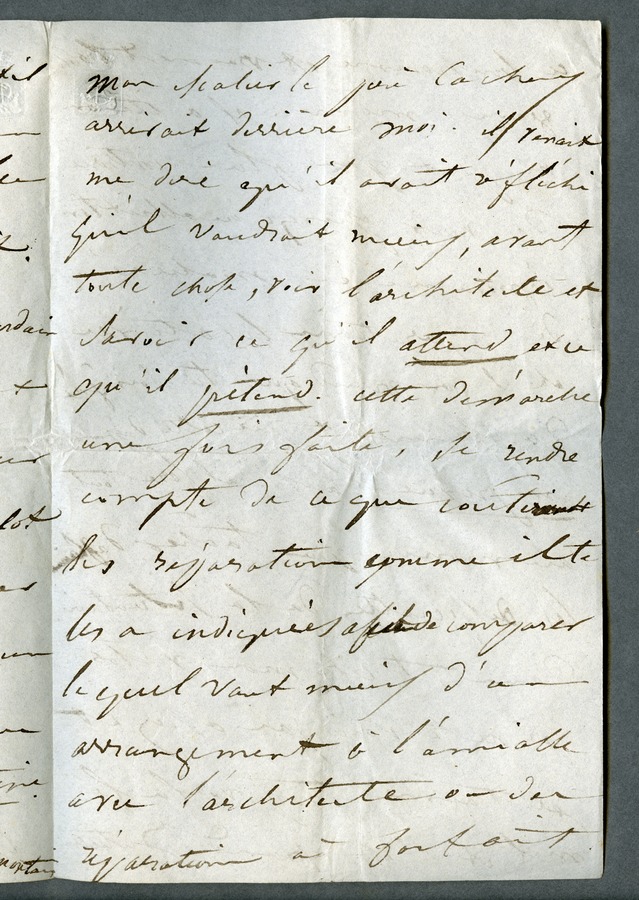 mon atelier le père Cacheux
arrivait derrière moi. il venait
me dire qu'il avait réfléchi
qu'il vaudrait mieux, avant
toute chose, voir l'architecte et
savoir ce qu'il attend et ce
qu'il prétend. cette démarche
une fois faite, se rendre
compte de ce que coûteraient
les réparations comme il te
les a indiquées afin de comparer
lequel vaut mieux d'un
arrangement à l'amiable
avec l'architecte ou des
réparations à forfait